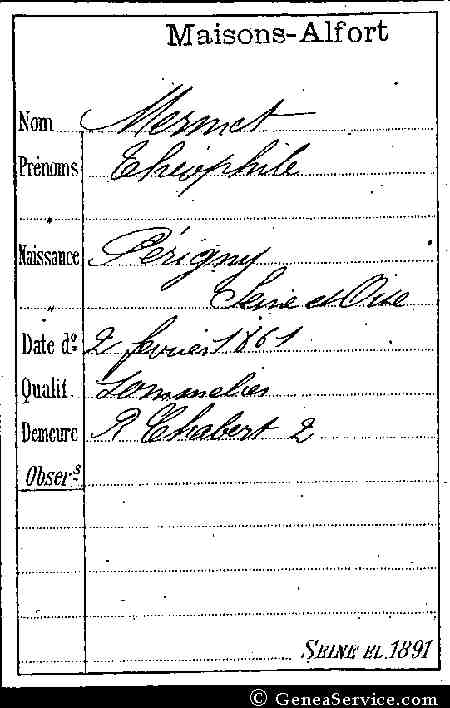 Maisons-Alfort
Nom Mermet
Prénoms Théophile
"
Naissance Périgny
" Seine et Oise
Date do. 2 fevrier 1861
Qualif. Sommelier
Demeure R Chabert 2
Obser.s
SEINE EL. 1891
© GeneaService.com